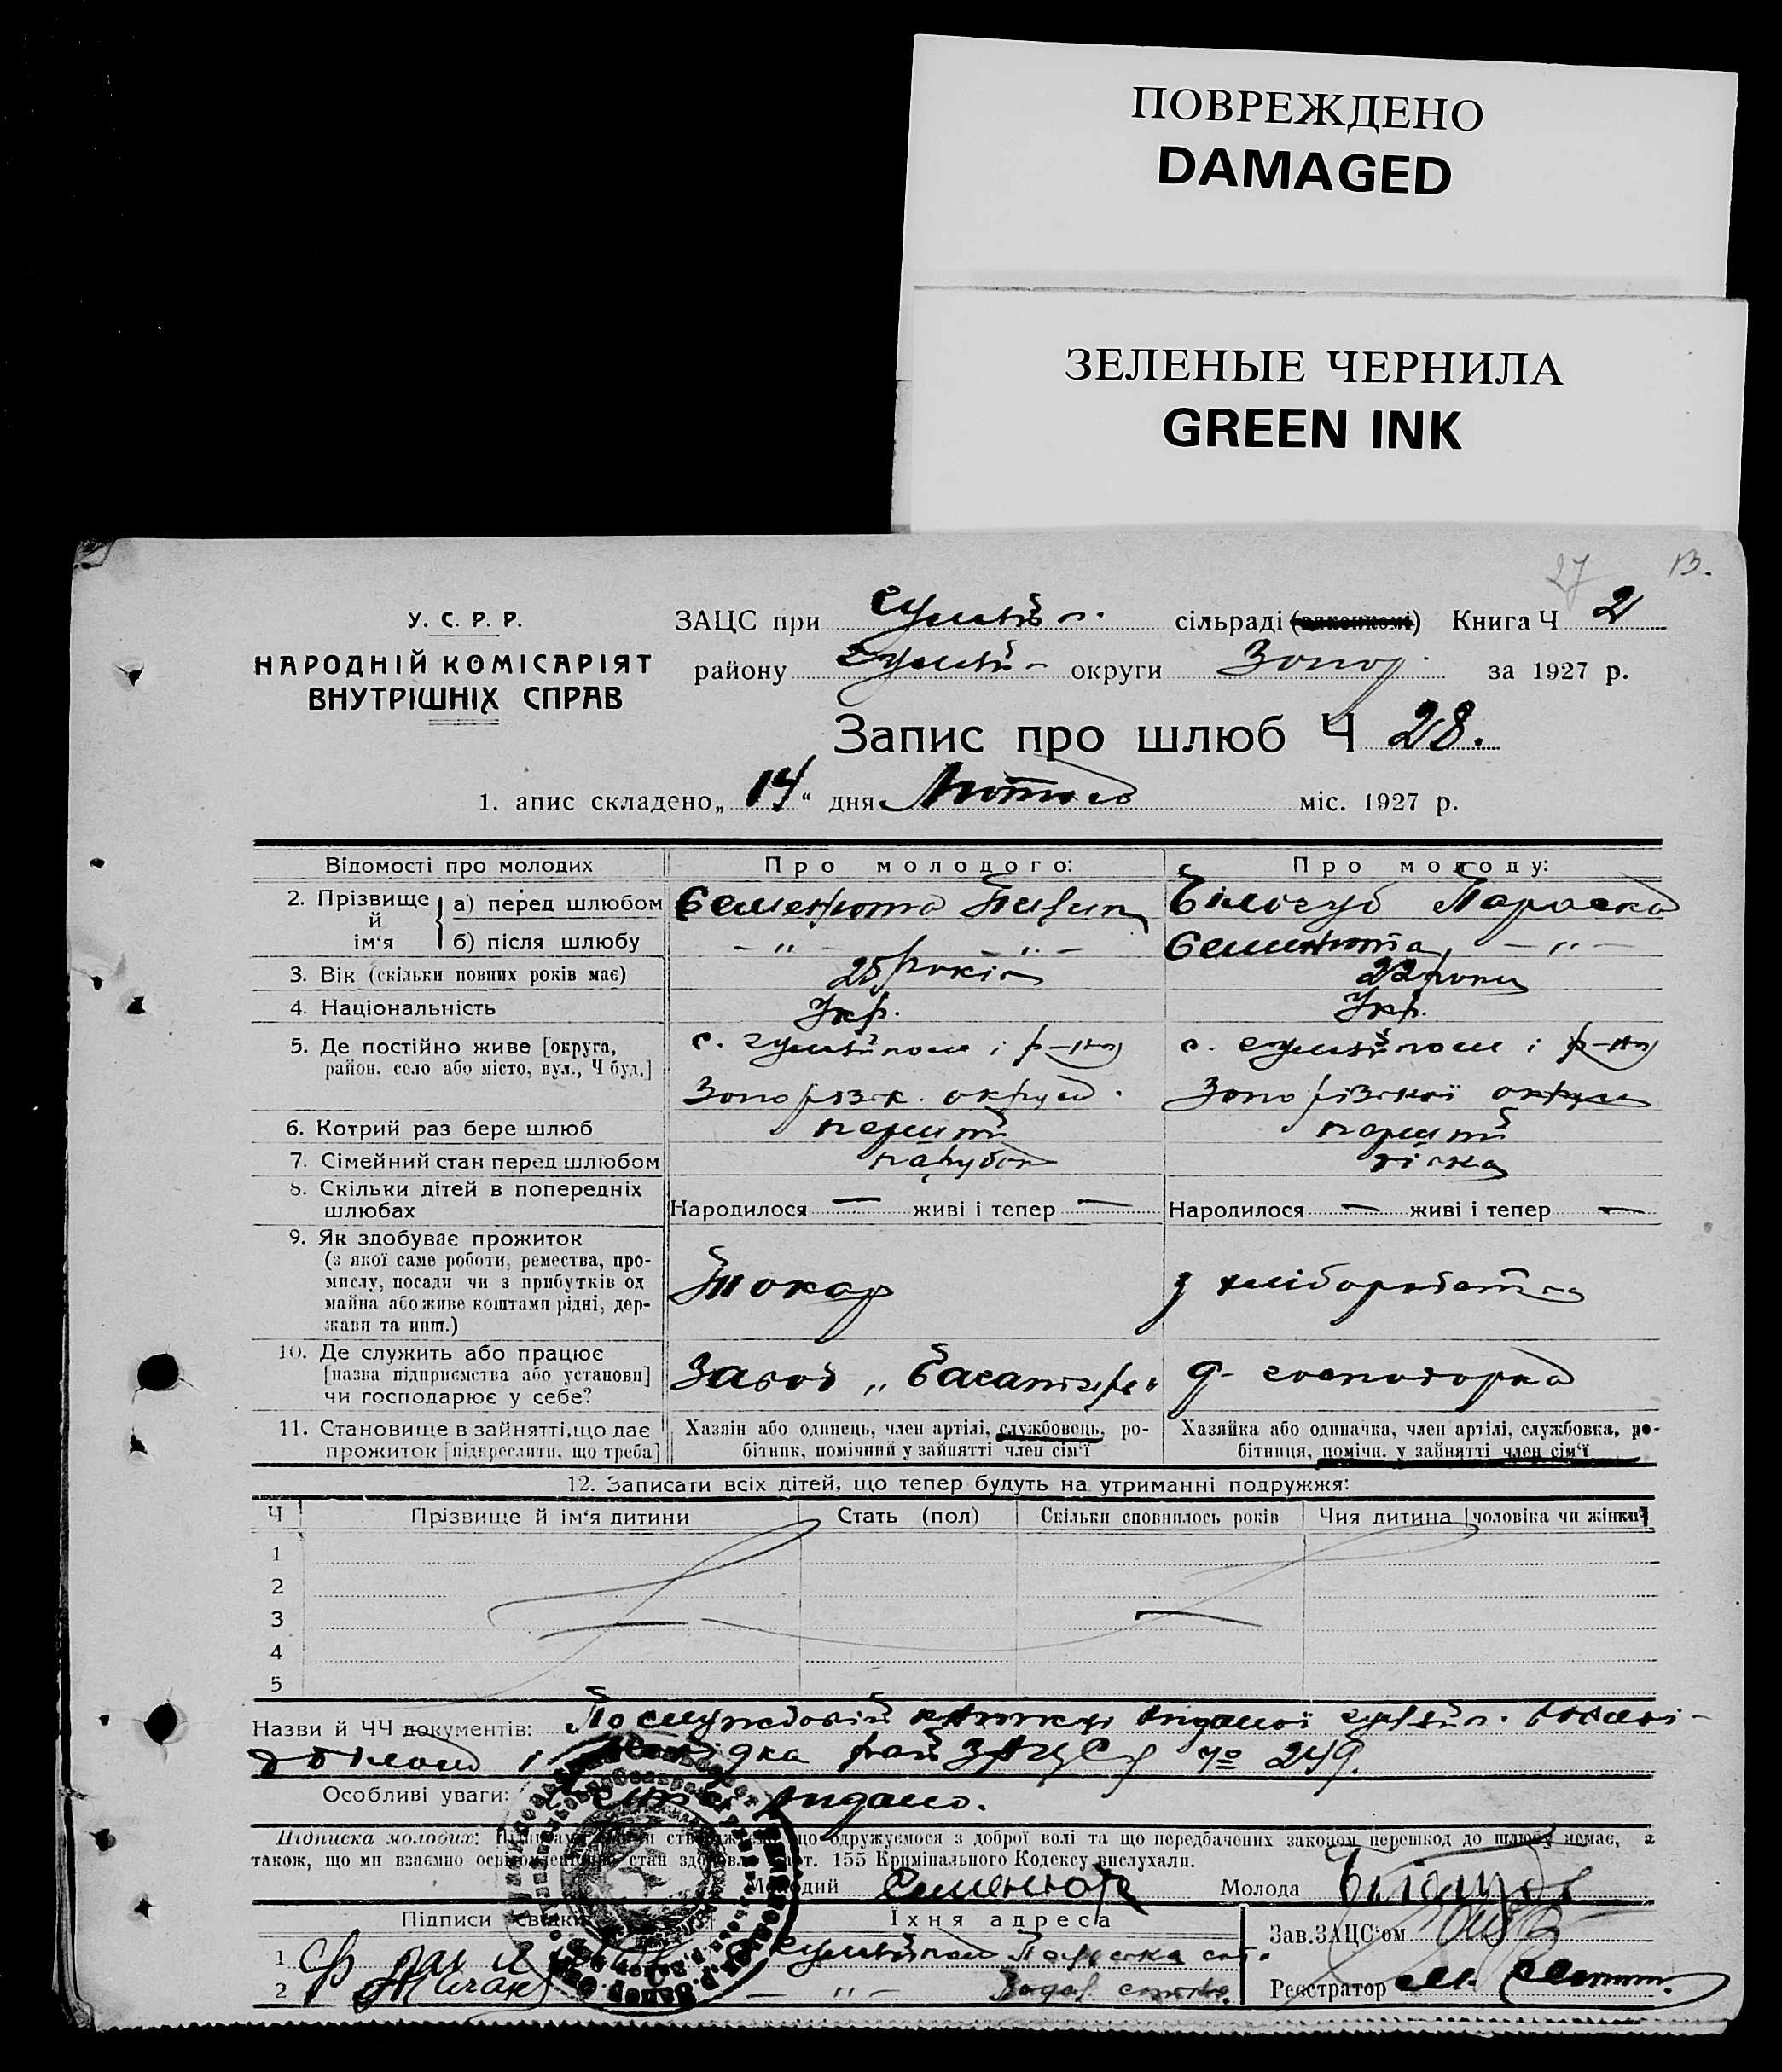 ПОВРЕЖДЕНО
DAMAGED
ЗЕЛЕНЫЕ ЧЕРНИЛА
GREEN INK
27 13.
У. С. Р. Р.
НАРОДНІЙ КОМІСАРІЯТ
ВНУТРІШНІХ СПРАВ
ЗАЦС при Гуляйп. сільраді (виконкомі) Книга Ч 2
району Гуляй- округи Запор. за 1927 р.
Запис про шлюб Ч 28.
1. апис складено „ 14 “ дня Лютого міс. 1927 р.
Відомості про молодих Про молодого: Про молоду:
2. Прізвище й ім‘я а) перед шлюбом Семенюта Білогуб Параска
б) після шлюбу - „ - - „ - Семенюта - „ -
3. Вік (скільки повних років має) 25 років 22 роки
4. Національність Укр. Укр.
5. Де постійно живе [округа, с. Гуляйполе і р-ну с. Гуляйполе і р-ну
район, село або місто, вул., Ч буд.]
Запорізк. округи. Запорізької округи
6. Котрий раз бере шлюб перший перший
7. Сімейний стан перед шлюбом парубок дівка
8. Скільки дітей в попередніх
шлюбах Народилося — живі і тепер — Народилося — живі і тепер —
9. Як здобуває прожиток
(з якої саме роботи, ремества, про-
мислу, посади чи з прибутків од
майна або живе коштами рідні, дер-
жави та инш.)
Токар з хліборобства
10. Де служить або працює
[назва підприємства або установи]
чи господарює у себе?
Завод „ у господарка
11. Становище в зайнятті, що дає
прожиток [підкреслити, що треба]
Хазяїн або одинець, член артілі, службовець, ро-
бітник, помічний у зайнятті член сім‘ї
Хазяйка або одиначка, член артілі, службовка, ро-
бітниця, помічн. у зайнятті член сім‘ї
12. Записати всіх дітей, що тепер будуть на утриманні подружжя:
Ч Прізвище й ім‘я дитини Стать (пол) Скільки сповнилось років Чия дитина [чоловіка чи жінки]
1
2
3
4
5
Назви й ЧЧ документів: Послужбовій книжці виданої Гуляйп.
рай ЗАЦСу № 249.
Особливі уваги: видано.
Підписка молодих: що одружуємося з доброї волі та що передбачених законом перешкод до шлюбу немає, а
також, що ми взаємно стан арт. 155 Кримінального Кодексу вислухали.
Молодий Семенюта Молода Білогуб
Підписи свідків Їхня адреса Зав.ЗАЦС‘ом
1 Гуляйполе
2 - „ - Реєстратор